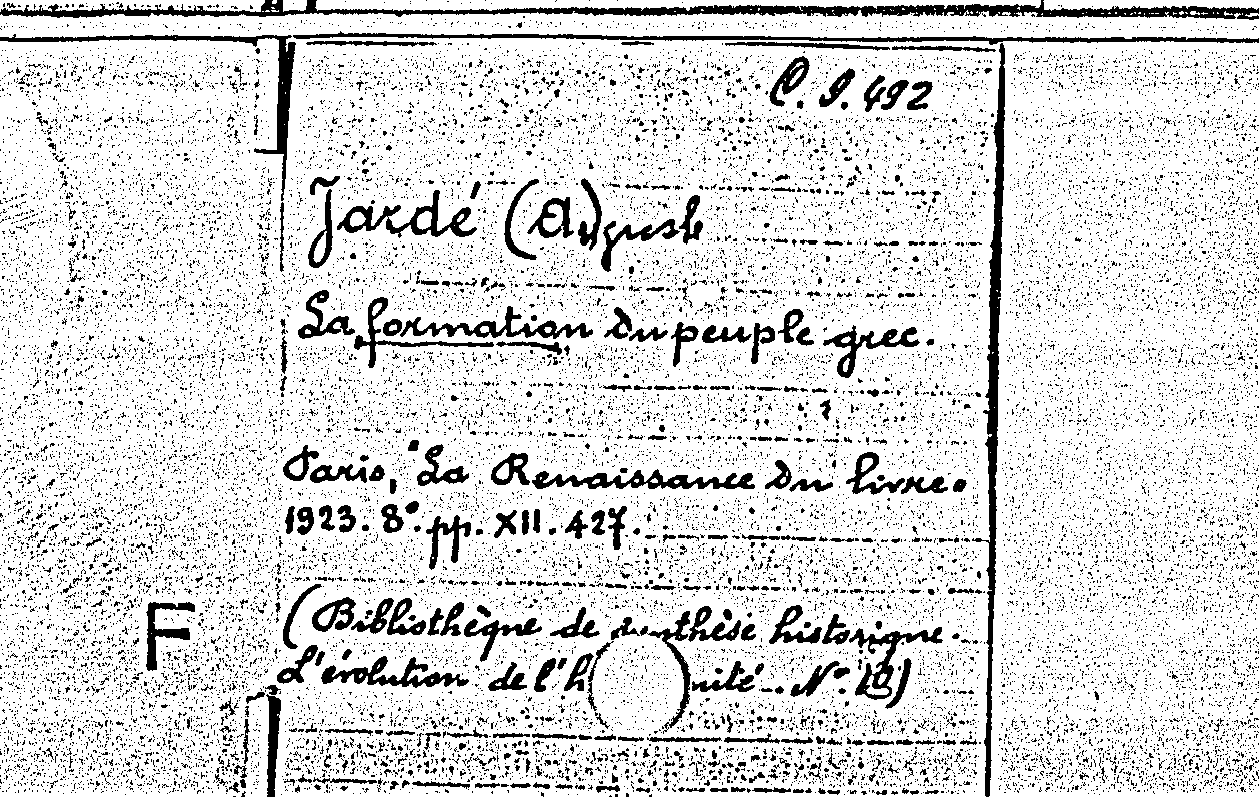 C. I. 492
Jardé (A) uguste
La formation du peuple grec.
Paris, "La Renaissance du livre"
1923. 8°. pp. XII. 427.
(Bibliothèque de synthèse historique.
F
L'évolution de l'h nité. N° 10)